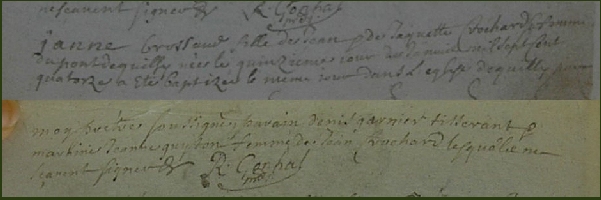 ne scavent signer R. Gonha
janne brossaud fille de jean et de jaquette Rochard sa femme
du pont dequilly nee le quinzieme jour de janvier mil sept sent
quatorze a ete baptizée le meme jour dans l eglise dequilly par
moy prétre soussigné parain denis garnier tisserant et
martine jeanne guyton femme de jean Rochard lesquels ne
scavent signer R. Gonha